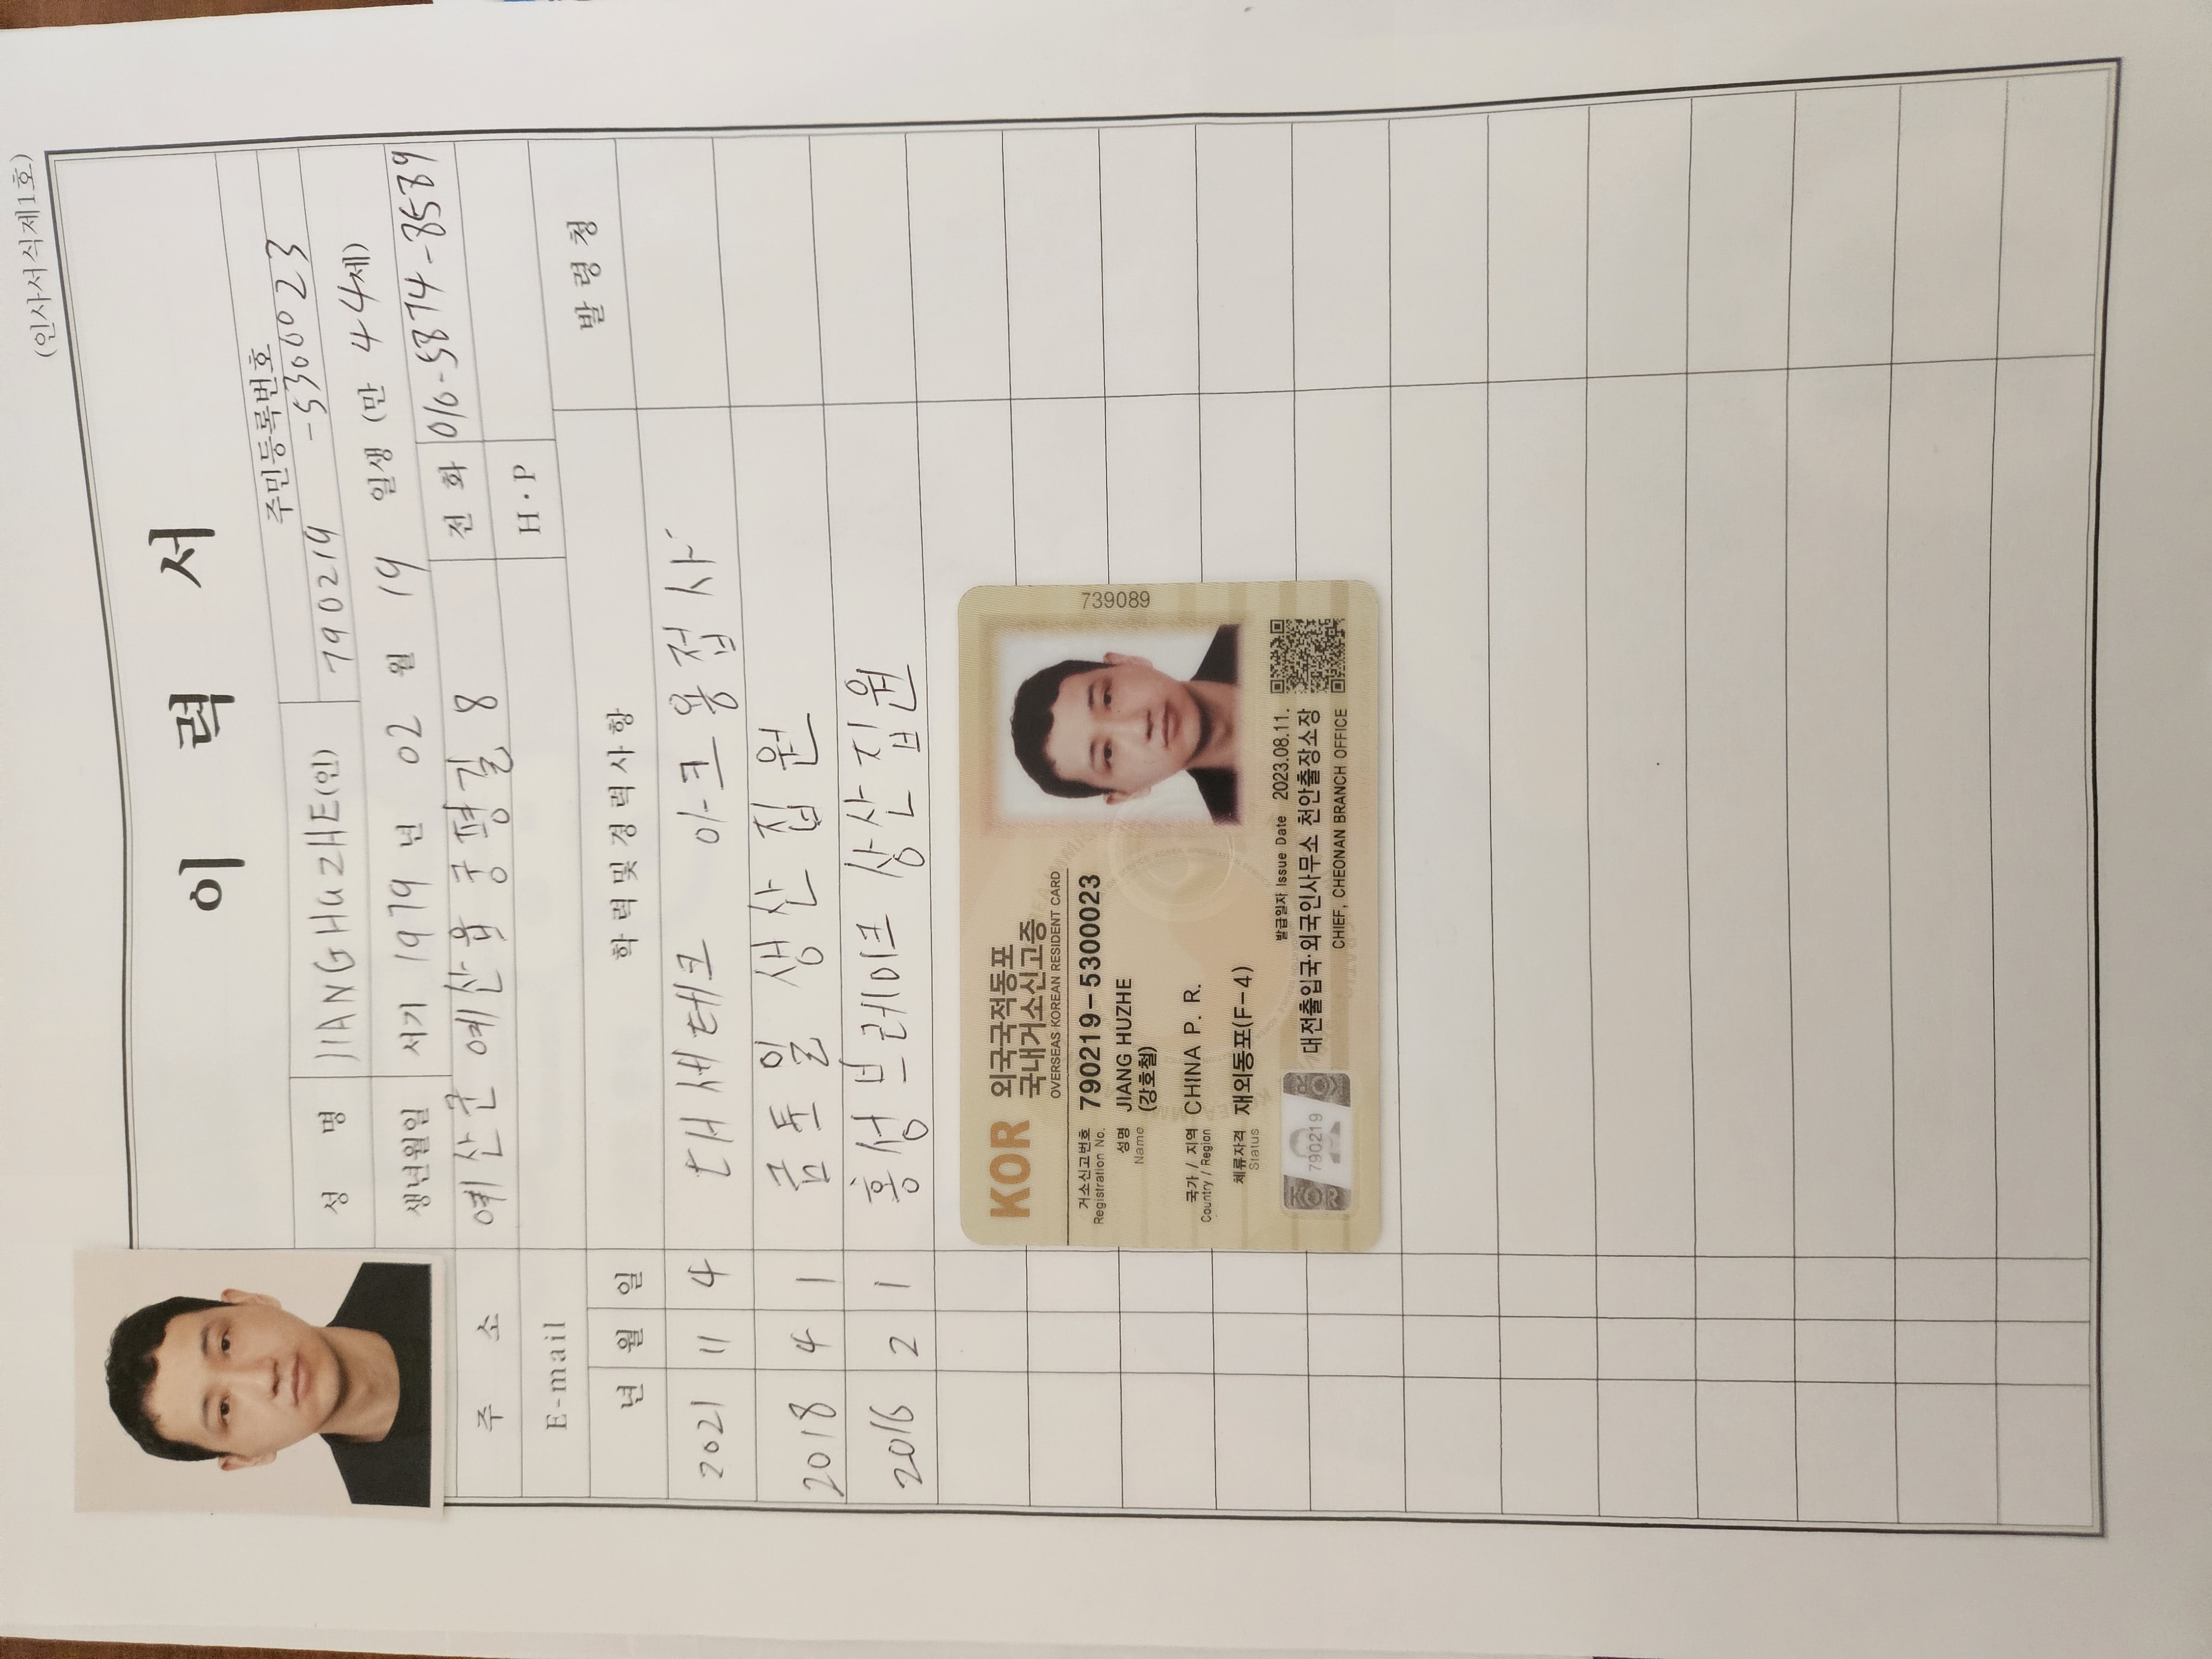 (인사서식제1호)
이 력 서
주민등록번호
성 명 JIANG HuZHE (인) 790219 -5300023
생년월일 서기 1979 년 02 월 19 일생 (만 44세)
주 소 예산군 예산읍 궁평길 8 전 화 010-5874-8589
E-mail H·P
년 월 일 학력및경력사항 발령청
2021 11 4 대세테크 아크용접사
2018 4 1 금도일 생산 집원
2016 2 1 홍성브레이크 상산집원
739089
KOR 외국국적동포
국내거소신고증
OVERSEAS KOREAN RESIDENT CARD
거소신고번호 790219-5300023
Registration No.
성명 JIANG HUZHE
Name (강호철)
국가 / 지역 CHINA P. R.
Country / Region
체류자격 재외동포(F-4)
Status
790219
발급일자 Issue Date 2023.08.11.
대전출입국·외국인사무소 천안출장소장
CHIEF, CHEONAN BRANCH OFFICE